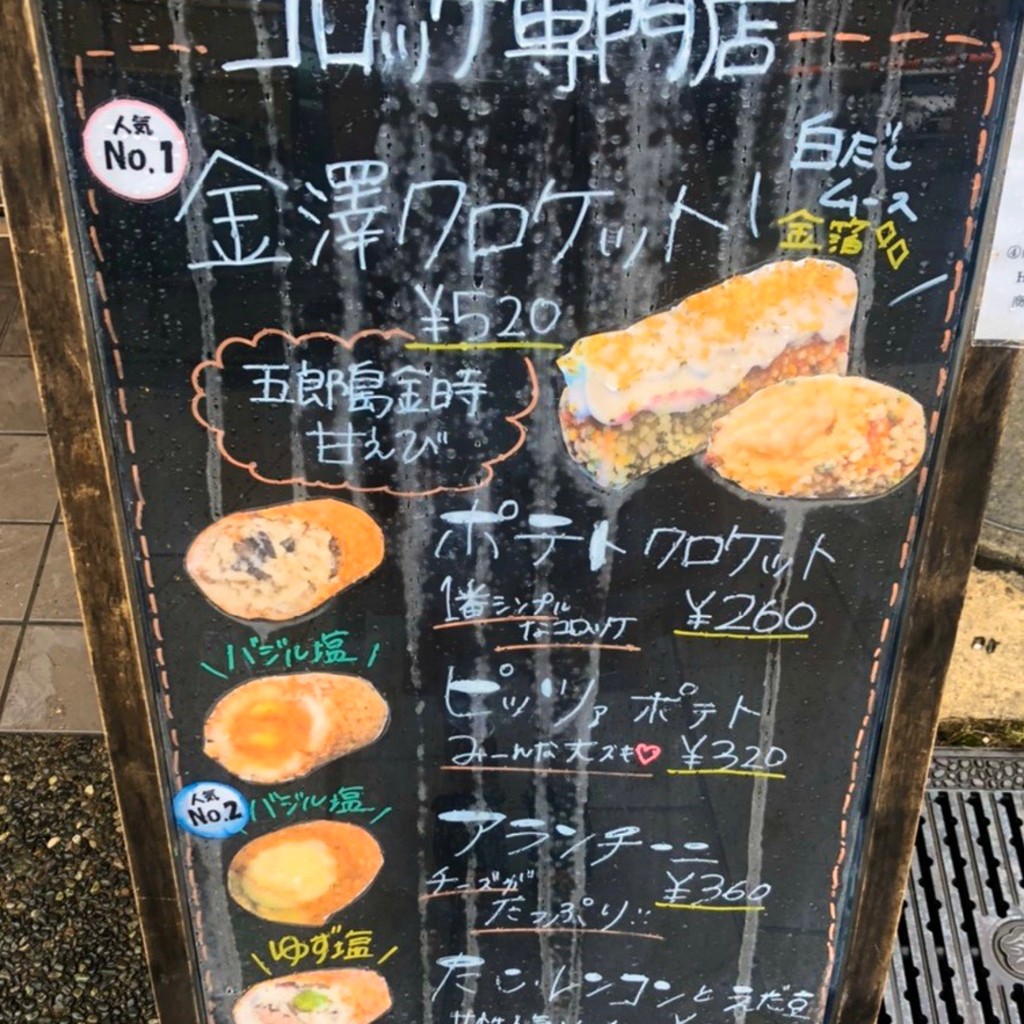 コロッケ専門店
人気
No.1
金澤クロケット
白だし
ムース
金箔
¥520
五郎島金時
甘えび
ポテトクロケット
1番シンプル
なコロッケ
¥260
バジル塩
ピッツァポテト
みーんな大スキ♡ ¥320
人気
No.2
バジル塩
アランチーニ
チーズが
たっぷり
¥360
ゆず塩
たこ・レンコンとえだ豆